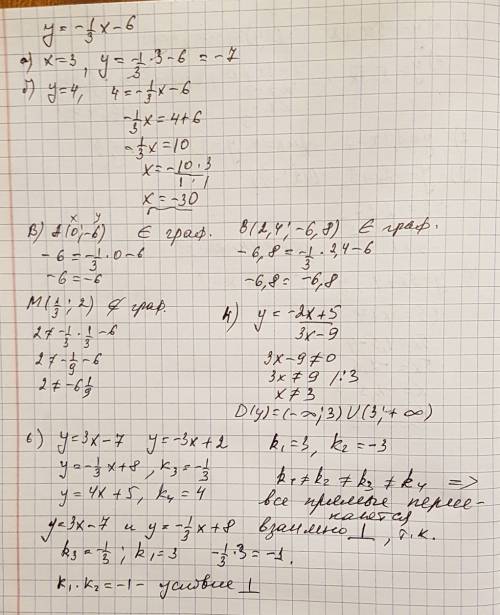 y = -1/3 x - 6
а) x = 3, y = -1/3 · 3 - 6 = -7
б) y = 4, 4 = -1/3 x - 6
-1/3 x = 4 + 6
-1/3 x = 10
x = -10 · 3 / 1 · 1
x = -30
x y
В) A(0; -6) ∈ граф.
-6 = -1/3 · 0 - 6
-6 = -6
B(2,4; -6,8) ∈ граф.
-6,8 = -1/3 · 2,4 - 6
-6,8 = -6,8
M(1/3; 2) ∉ граф.
2 ≠ -1/3 · 1/3 - 6
2 ≠ -1/9 - 6
2 ≠ -6 1/9
4) y = -2x + 5 / 3x - 9
3x - 9 ≠ 0
3x ≠ 9 /:3
x ≠ 3
D(y) = (-∞; 3) U (3; +∞)
6) y = 3x - 7 y = -3x + 2 k₁ = 3, k₂ = -3
y = -1/3 x + 8, k₃ = -1/3
y = 4x + 5, k₄ = 4
k₁ ≠ k₂ ≠ k₃ ≠ k₄ =>
все прямые пересе-
каются
y = 3x - 7 и y = -1/3 x + 8 взаимно ⊥, т.к.
k₃ = -1/3; k₁ = 3 -1/3 · 3 = -1.
k₁ · k₂ = -1 - условие ⊥